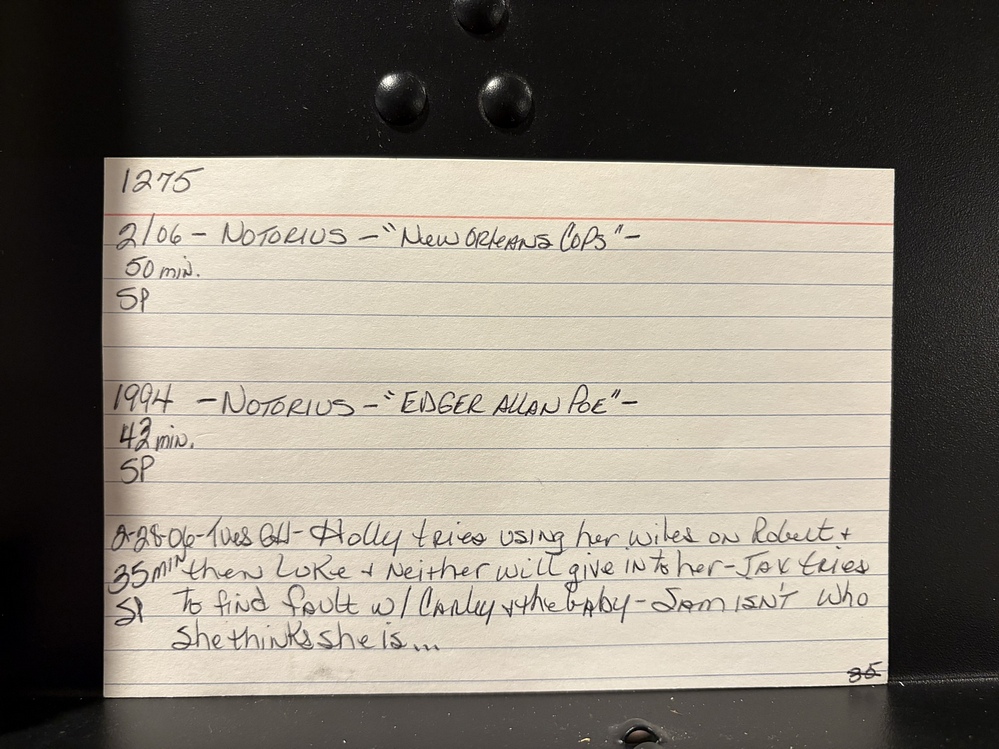 1275
2/06 - NOTORIUS - "NEW ORLEANS COPS" -
50 min.
SP
1994 - NOTORIUS - "EDGER ALLAN POE" -
42 min.
SP
2-28-06-Tues GH- Holly tries using her wiles on Robert +
35 MIN then Luke + Neither will give in to her - JAX tries
SP To find fault w/ Carly + the baby - SAM ISN'T who
she thinks she is...
35